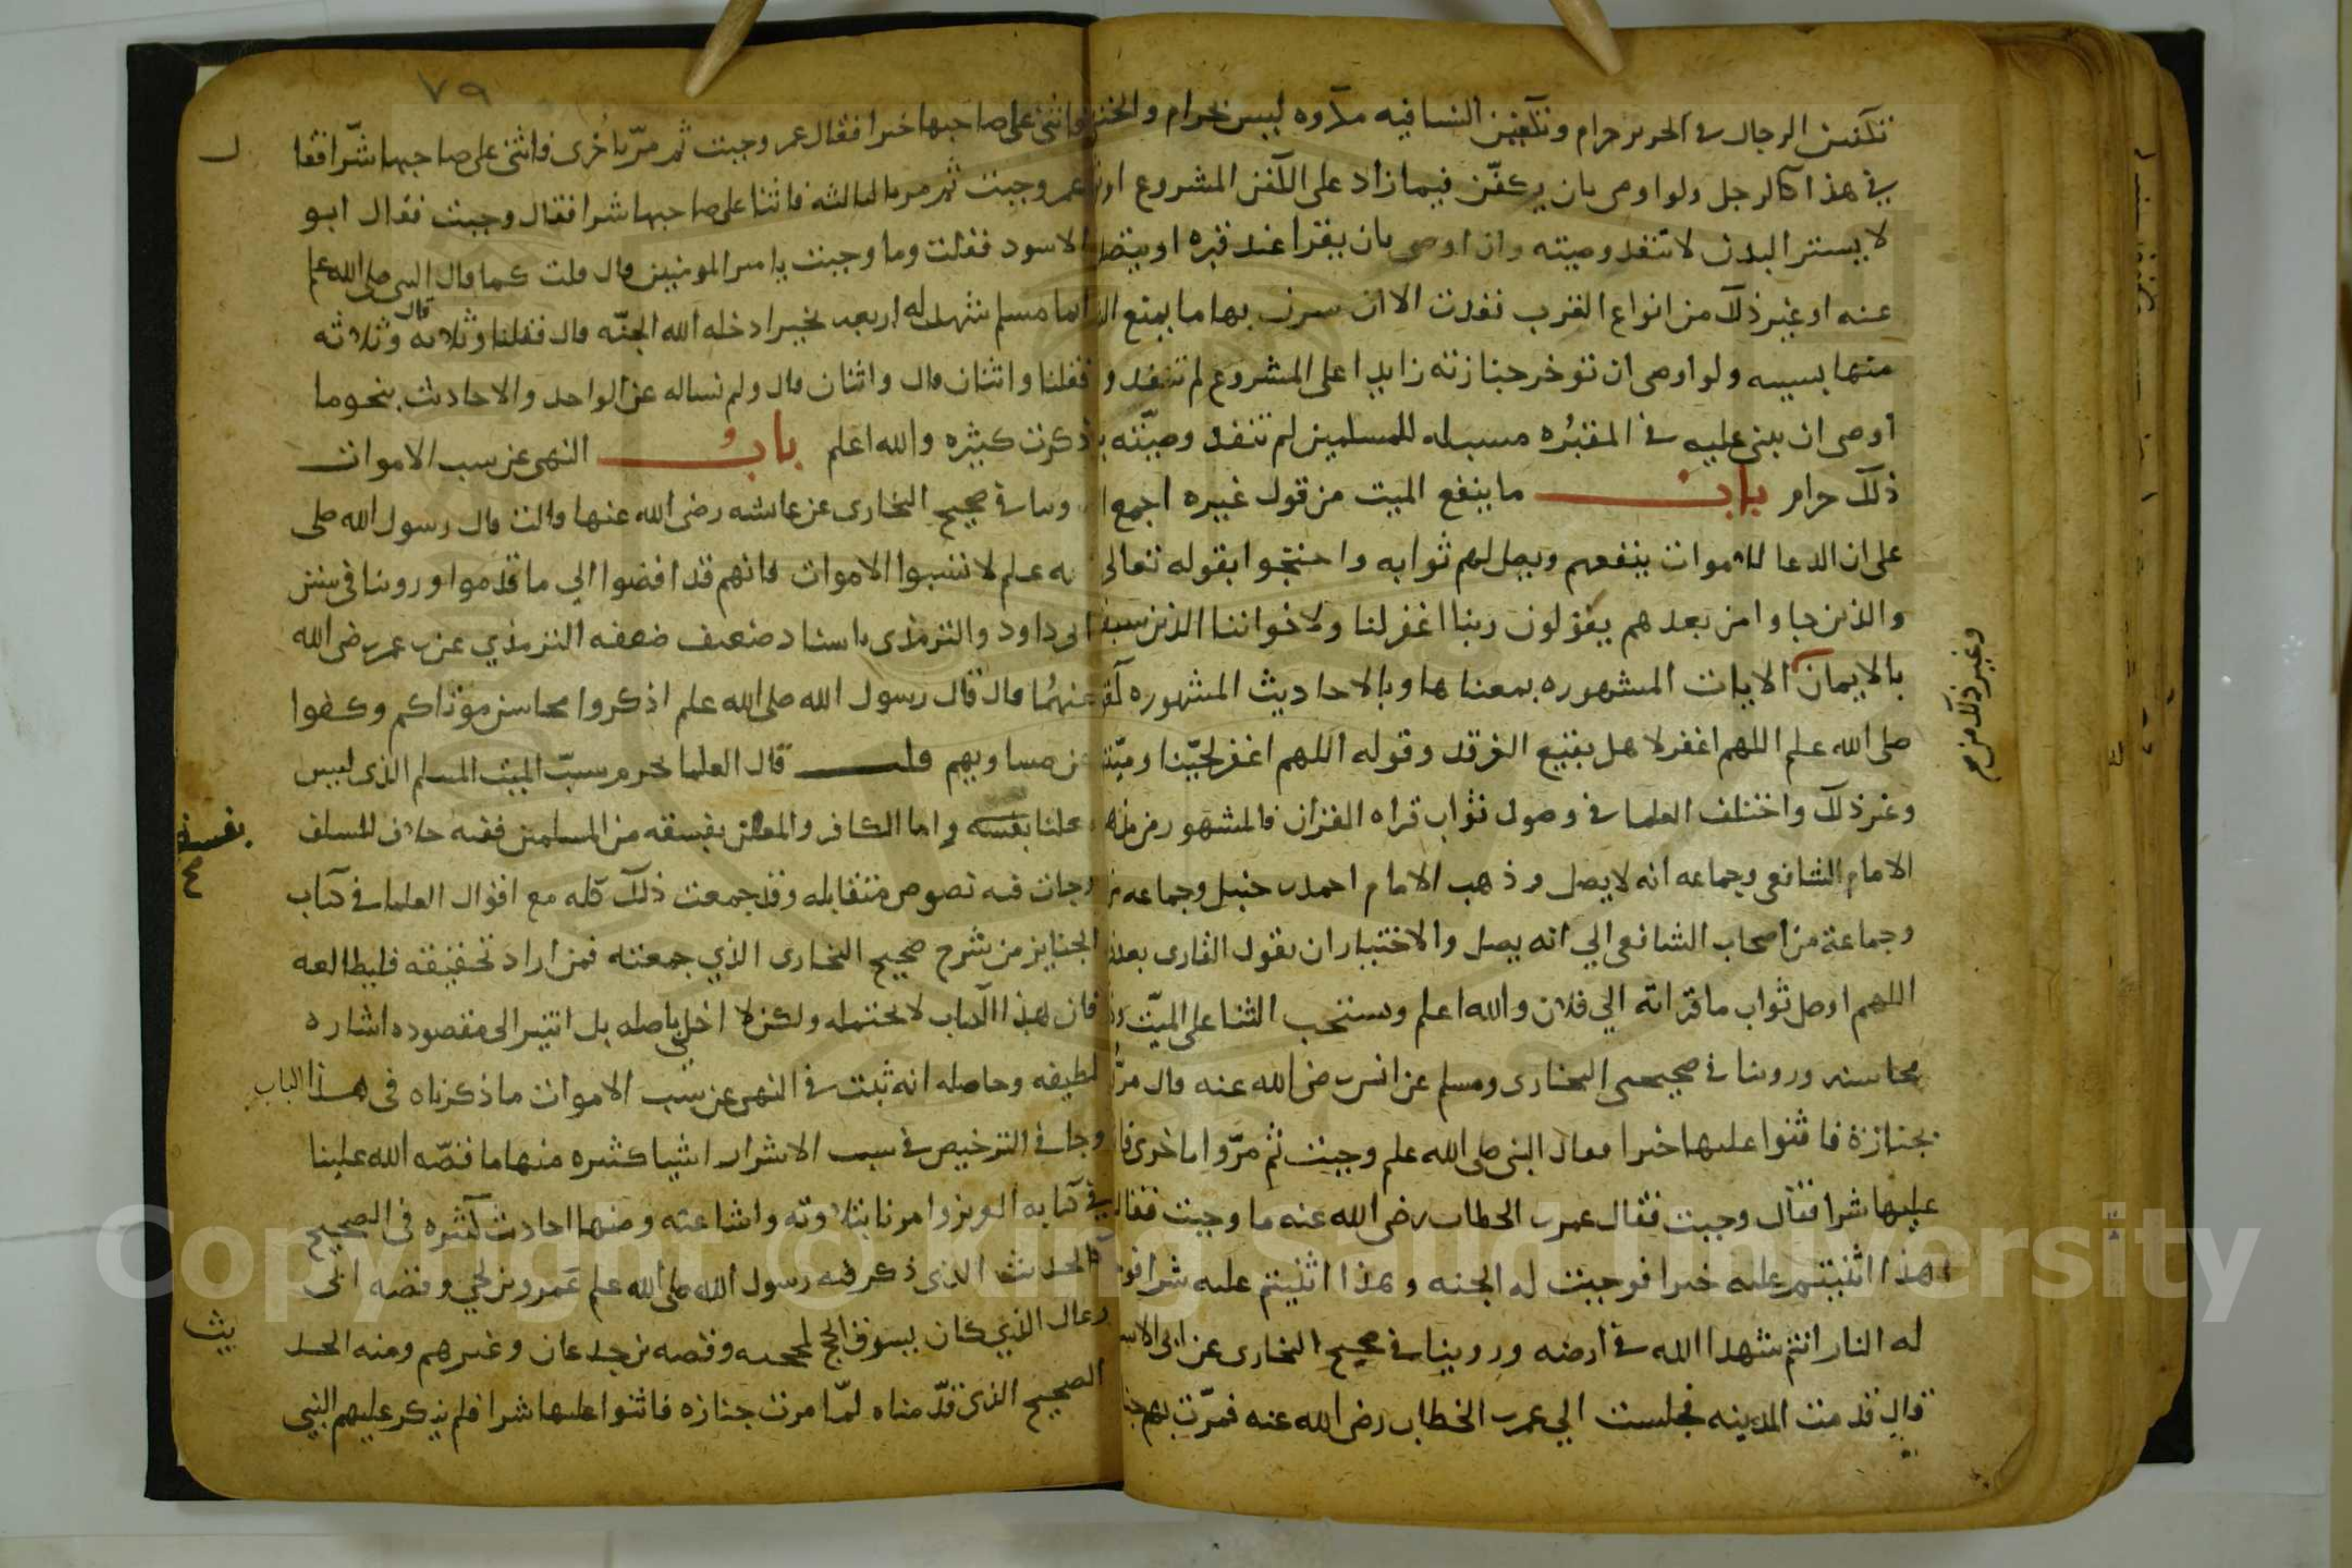 تكفين الرجال في الحرير حرام وتكفين النسا فيه مكروه ليس بحرام والخنثى
في هذا كالرجل ولو اوصى بان يكفن فيما زاد على الكفن المشروع او
لا يستر البدن لا تنفد وصيته وان اوصى بان يقرا عند قبره او يتصد
عنه او غير ذلك من انواع القرب نفدت الا ان يقترن بها ما يمنع
منها بسببه ولو اوصى ان توخر جنازته زايدا على المشروع لم تنفد و
اوصى ان يبنى عليه في المقبره مسبله للمسلمين لم تنفد وصيته
ذلك حرام باب ما ينفع الميت من قول غيره اجمع
على ان الدعا للاموات ينفعهم ويصل لهم ثوابه واحتجوا بقوله تعالى
والذين جاوا من بعدهم يقولون ربنا اغفر لنا ولاخواننا الذين سبقو
بالايمان الايات المشهوره بمعناها وبالاحاديث المشهوره
صلى الله علم اللهم اغفر لاهل بقيع الغرقد وقوله اللهم اغفر لحينا وميتنا
وغير ذلك واختلف العلما في وصول ثواب قراه القران فالمشهور من
الامام الشافعي وجماعه انه لا يصل وذهب الامام احمد بن حنبل وجماعه
وجماعة من اصحاب الشافعي الي انه يصل والاختيار ان يقول القارى بعد
اللهم اوصل ثواب ما قراته الي فلان والله اعلم ويستحب الثنا على الميت وذ
محاسنه وروينا في صحيحي البخارى ومسلم عن انس رضى الله عنه قال مروا
بجنازة فاثنوا عليها خيرا فقال النبي صلى الله علم وجبت ثم مروا باخرى فا
عليها شرا فقال وجبت فقال عمر بن الخطاب رضى الله عنه ما وجبت فقال
هذا اثنيتم عليه خيرا فوجبت له الجنه وهذا اثنيتم عليه شرا فو
له النار انتم شهدا الله في ارضه وروينا في صحيح البخارى عن ابي الاسو
قال قدمت المدينه فجلست الي عمر بن الخطاب رضى الله عنه فمرت بهم
وغير ذلك من
٧٩
فاثنى على صاحبها خيرا فقال عمر وجبت ثم مر باخرى فاثنى على صاحبها شرا فقا
ل
عمر وجبت ثم مر بالثالثه فاثنا على صاحبها شرا فقال وجبت فقال ابو
الاسود فقلت وما وجبت يا امير المومنين قال قلت كما قال النبي صلى الله علم
ايما مسلم شهد له اربعه بخير ادخله الله الجنه قال فقلنا وثلاثه قال وثلاثه
فقلنا واثنان قال واثنان قال ولم نساله عن الواحد والاحاديث بنحو ما
ذكرت كثيره والله اعلم باب النهى عن سب الاموات
روينا في صحيح البخارى عن عايشه رضى الله عنها قالت قال رسول الله صلى
الله علم لا تسبوا الاموات فانهم قد افضوا الي ما قدموا وروينا في سنن
ابى داود والترمذى باسناد ضعيف ضعفه الترمذي عن بن عمر رضى الله
عنهما قال قال رسول الله صلى الله علم اذكروا محاسن موتاكم وكفوا
عن مساويهم قلت قال العلما يحرم سب الميت المسلم الذى ليس
معلنا بفسقه واما الكافر والمعلن بفسقه من المسلمين ففيه خلاف للسلف
بفسقه
وجات فيه نصوص متقابله وقد جمعت ذلك كله مع اقوال العلما في كتاب
الجنايز من شرح صحيح البخارى الذي جمعته فمن اراد تحقيقه فليطالعه
فان هذا الكتاب لا يحتمله ولكن لا اخلي باصله بل اشير الى مقصوده اشاره
لطيفه وحاصله انه ثبت في النهى عن سب الاموات ما ذكرناه فى هذا الباب
وجا في الترخيص في سب الاشرار اشيا كثيره منها ما قصه الله علينا
في كتابه العزيز وامرنا بتلاوته واشاعته ومنها احاديث كثيره فى الصحيح
كالحديث الذى ذكر فيه رسول الله صلى الله علم عمرو بن لحي وقصه ابى
رغال الذي كان يسرق الحاج بمحجنه وقصه بن جدعان وغيرهم ومنه الحد
يث
الصحيح الذى قدمناه لما مرت جنازه فاثنوا عليها شرا فلم ينكر عليهم النبي
Copyright © King Saud University